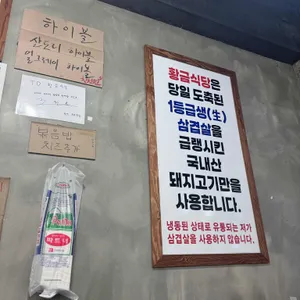 하이볼
산토니 하이볼
얼그레이 하이볼
볶음밥
치즈추가
황금식당은
당일 도축된
1등급생(生)
삼겹살을
급랭시킨
국내산
돼지고기만을
사용합니다.
냉동된 상태로 유통되는 저가
삼겹살을 사용하지 않습니다.